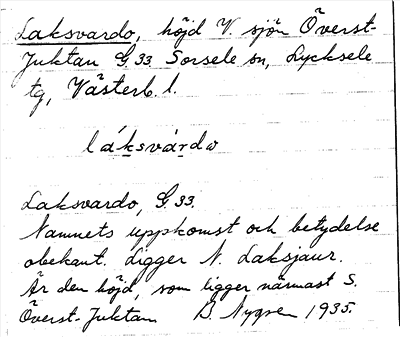 Laksvardo, höjd V. sjön Överst-
Juktan G. 33. Sorsele sn, Lycksele
tg, Västerb. l.
láksvárdω
Laksvardo, G. 33.
Namnets uppkomst och betydelse
obekant. Ligger N. Laksjaur.
Är den höjd, som ligger närmast S.
Överst-Juktan B. Nygren 1935.